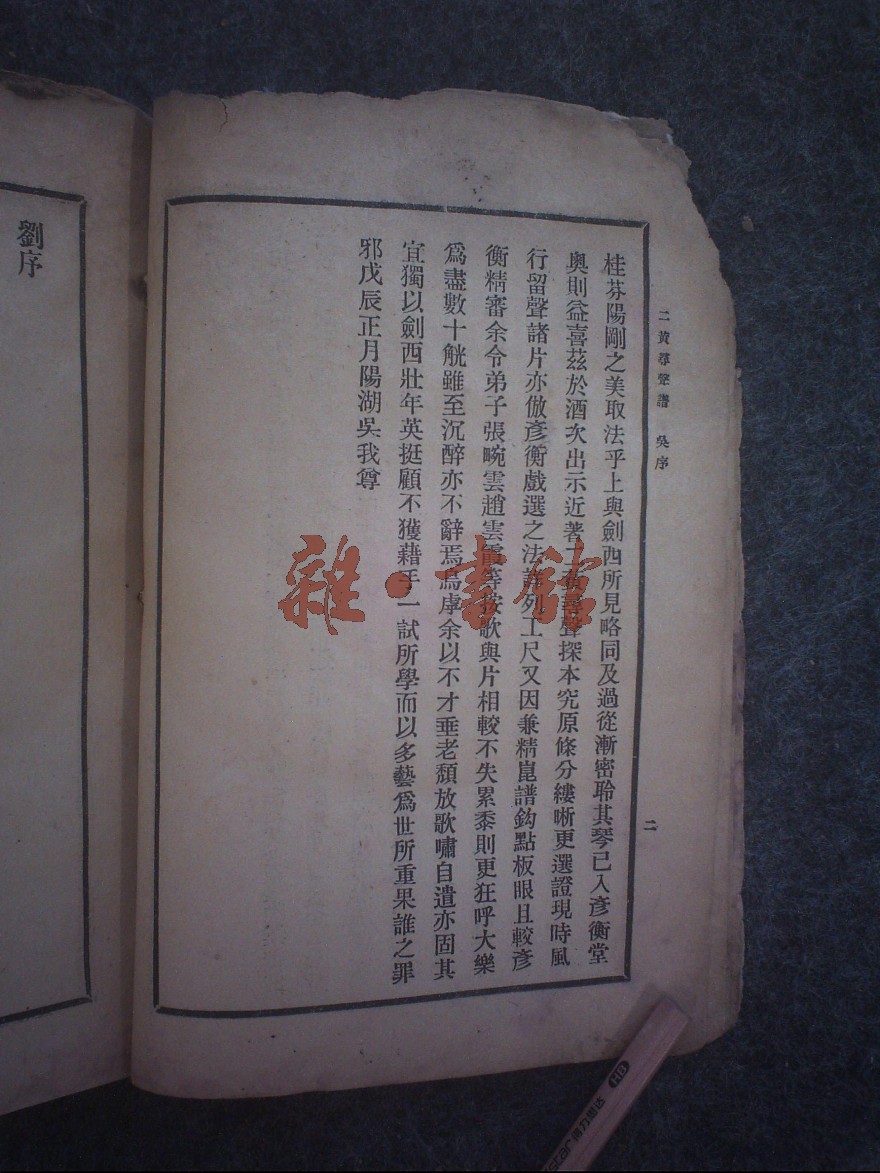 二黃尋聲譜 吳序
二
桂芬陽剛之美取法乎上與劍西所見略同及過從漸密聆其琴已入彥衡堂
奧則益喜茲於酒次出示近著二黃尋聲探本究原條分縷晰更選證現時風
行留聲諸片亦倣彥衡戲選之法詳列工尺又因兼精崑譜鈎點板眼且較彥
衡精審余令弟子張畹雲趙雲霞等按歌與片相較不失累黍則更狂呼大樂
爲盡數十觥雖至沉醉亦不辭焉烏虖余以不才垂老頹放歌嘯自遣亦固其
宜獨以劍西壯年英挺顧不獲藉手一試所學而以多藝爲世所重果誰之罪
邪戊辰正月陽湖吳我尊
劉序
雜·書館
HB